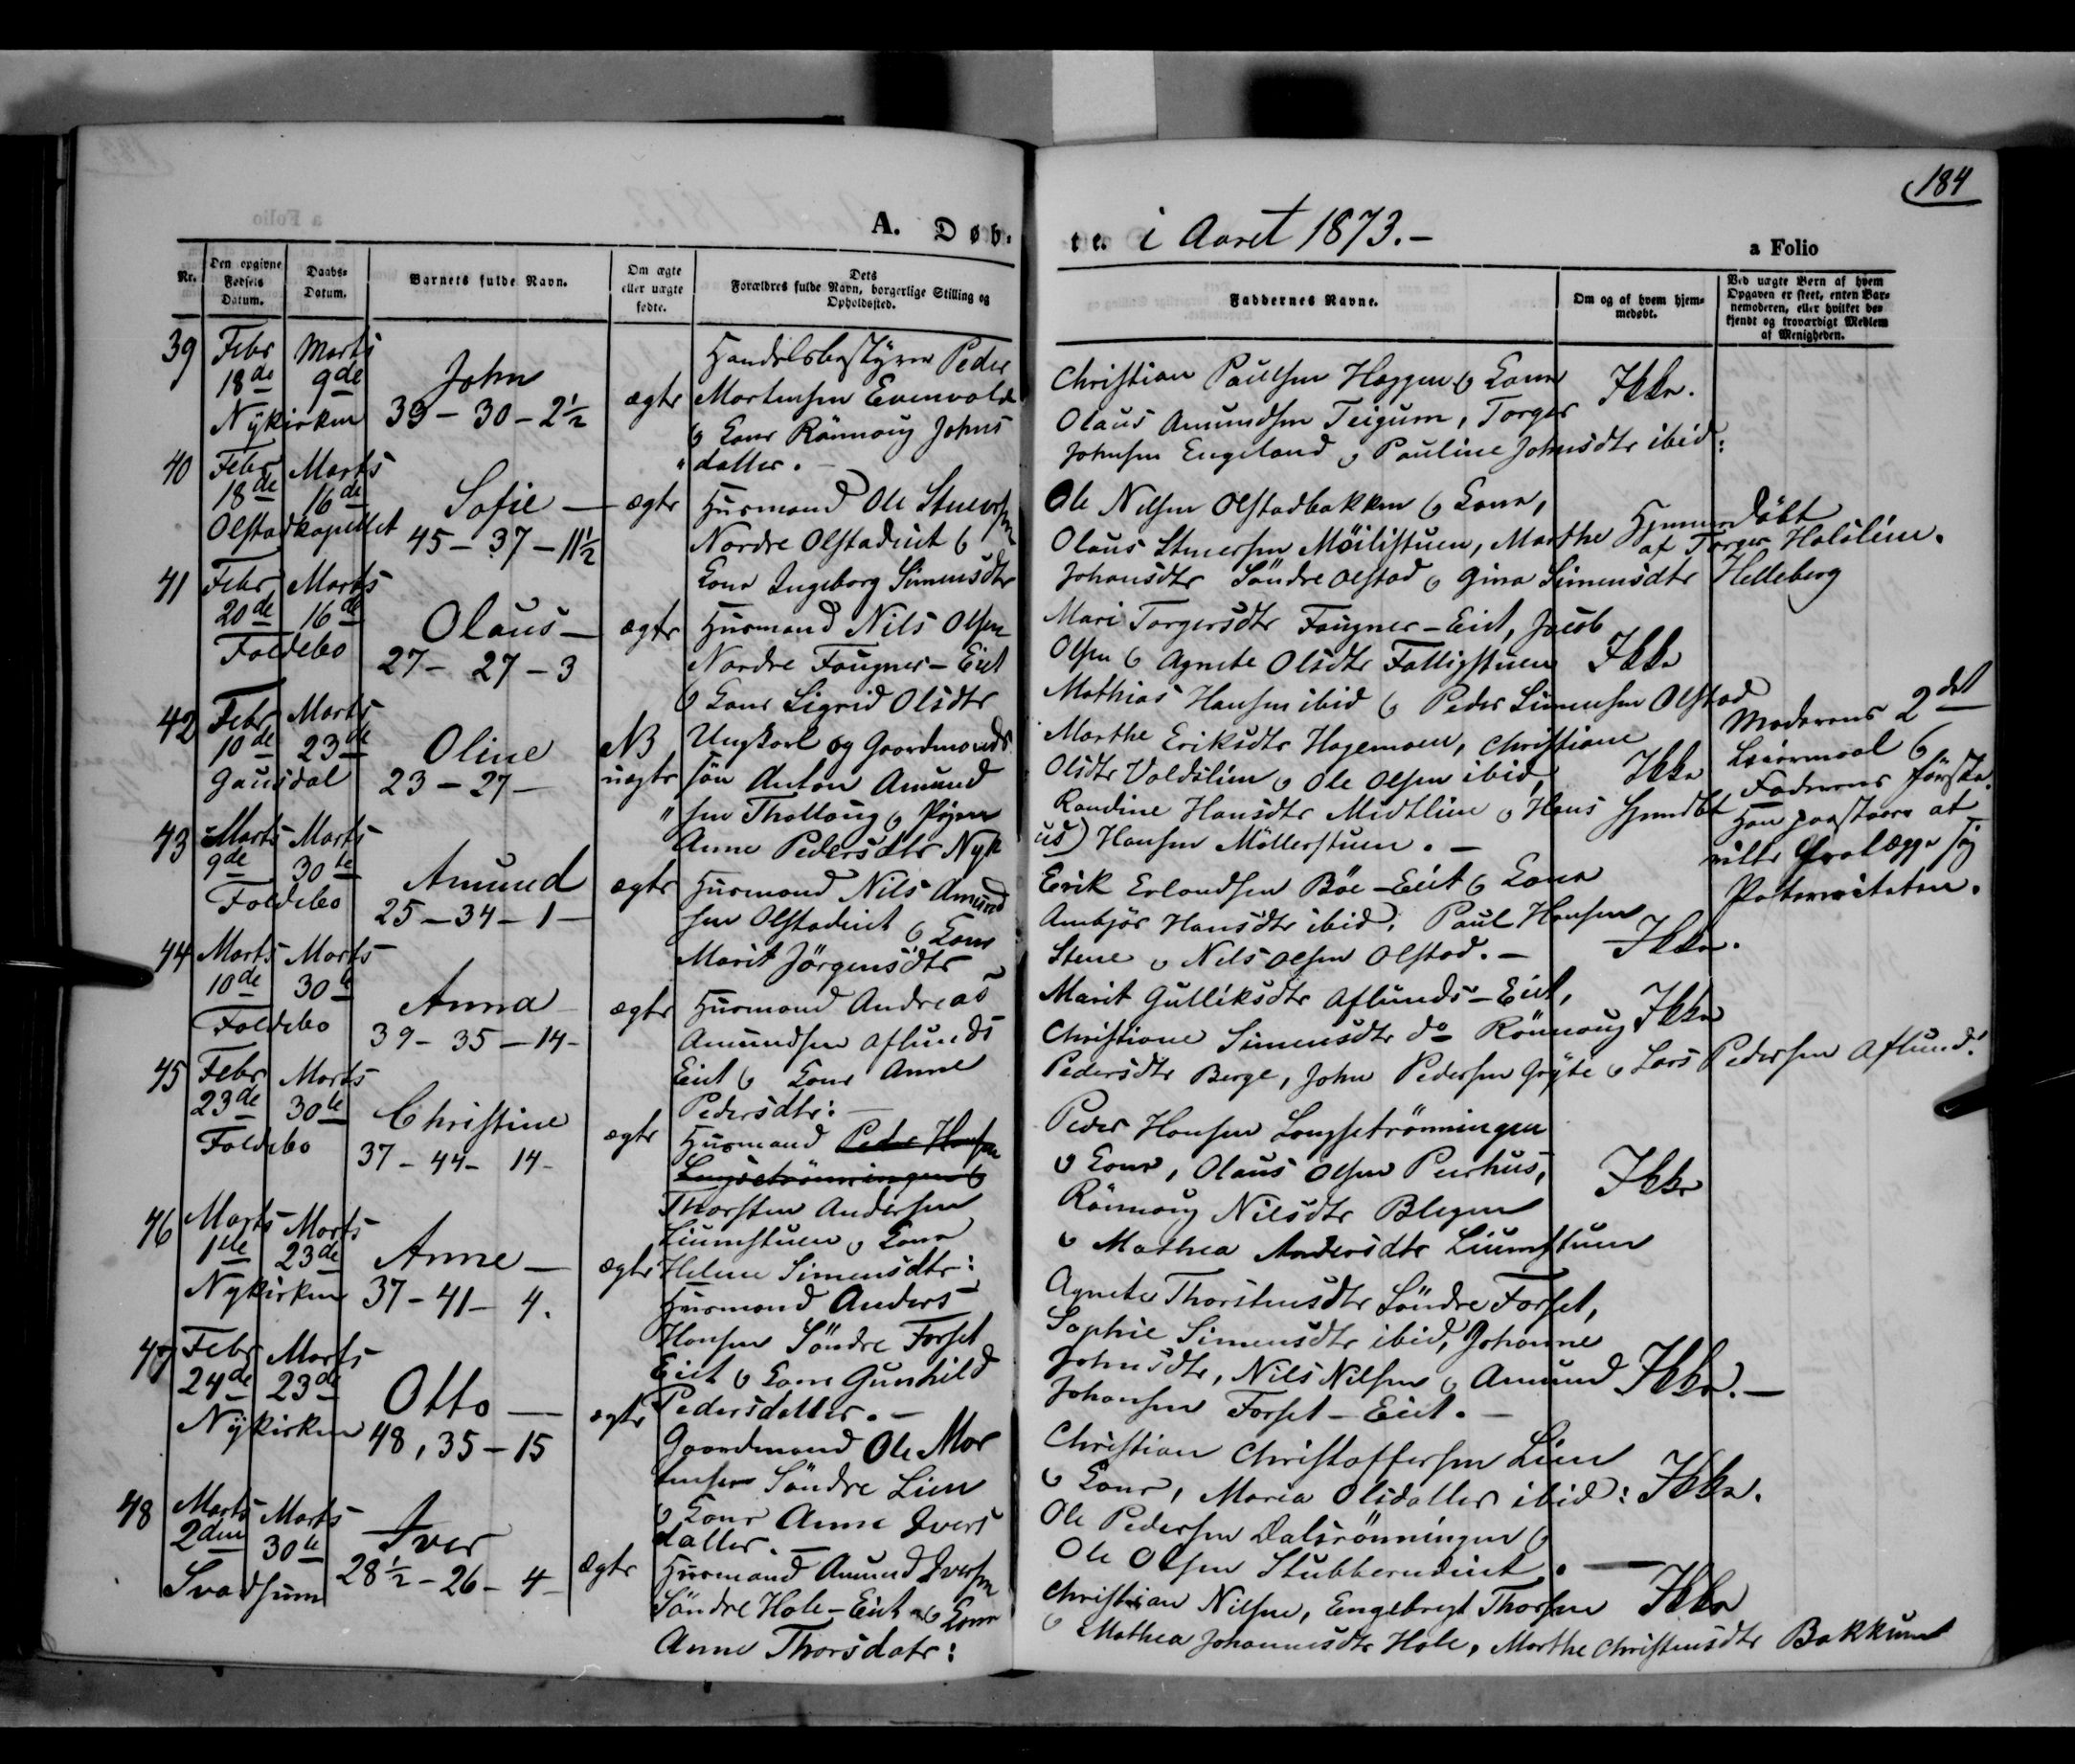 184
A. Døb-
te. i Aaret 1873.-
a Folio
Nr.
Den opgivne
Fødsels
Datum.
Daabs-
Datum.
Barnets fulde Navn.
Om ægte
eller uægte
fødte.
Dets
Forældres fulde Navn, borgerlige Stilling og
Opholdssted.
Faddernes Navne.
Om og af hvem hjem-
medøbt.
Ved uægte Børn af hvem
Opgaven er skeet, enten Bar-
nemoderen, eller hvilket be-
kjendt og troværdigt Medlem
af Menigheden.
39 Febr Marts
18de 9de
Nykirken
John
39-30-2½
ægte
Handelsbestyrer Peder
Mortensen Evenvold
og Kone Rønnaug Johns
datter.-
Christian Paulsen Haggen og Kone
Olaus Amundsen Teigum, Torger
Johnsen Engeland og Pauline Johnsdtr ibid:
Ikke.
40 Febr Marts
18de 16de
Olstadkapellet
Sofie-
45-37-11½
ægte
Husmand Ole Steners
Nordre Olstadeiet og
Kone Ingeborg Simensdtr
Ole Nilsen Olstadbakken og Kone,
Olaus Stenersen Møilistuen, Marthe
Johansdtr Søndre Olstad og Gina Simensdtr Helleberg
Hjemmedøbt
af Torger Holslien.
41 Febr Marts
20de 16de
Foldebo
Olaus-
27-27-3
ægte
Husmand Nils Olsen
Nordre Fougner-Eiet
og Kone Sigrid Olsdtr
Mari Torgersdtr Fougner-Eiet, Jacob
Olsen og Agnete Olsdtr Fattigstuen
Mathias Hansen ibid og Peder Simensen Olstad
Ikke
42 Febr Marts
10de 23de
Gausdal
Oline
23-27-
NB
uægte
Ungkarl og Gaardmands
søn Anton Amund
sen Tholloug og Pigen
Anne Pedersdtr Nyk
Marthe Eriksdtr Hagemoen, Christiane
Olsdtr Voldslien og Ole Olsen ibid,
Randine Hansdtr Midtlien og Hans
us) Hansen Møllerstuen.-
Ikke
Moderens 2det
Leiermaal og
Faderens første.
Han paastaaer at
ville fralægge sig
Paterniteten.
43 Marts Marts
9de 30te
Foldebo
Amund
25-34-1-
ægte
Husmand Nils Amund
sen Olstadeiet og Kone
Marit Jørgensdtr
Erik Erlandsen Bøe-Eiet og Kone
Ambjør Hansdtr ibid: Paul Hansen
Stene og Nils Olsen Olstad.-
Ikke.
44 Marts Marts
10de 30te
Foldebo
Anna
39-35-14-
ægte
Husmand Andreas
Amundsen Aflunds
Eiet og Kone Anne
Pedersdtr:-
Marit Gulliksdtr Aflunds-Eiet,
Christiane Simensdtr do Rønnaug
Pedersdtr Berge, John Pedersen Gryte og Lars Pedersen Aflund.
Ikke
45 Febr Marts
23de 30te
Foldebo
Christine
37-44-14-
ægte
Husmand Peder Hansen
Langsetrønningen og
Thorsten Andersen
Liumstuen og Kone
Helene Simensdtr:
Peder Hansen Langsetrønningen
og Kone, Olaus Olsen Peerhus,
Rønnaug Nilsdtr Blegen
og Mathea Andersdtr Liumstuen
Ikke
46 Marts Marts
1ste 23de
Nykirken
Anne-
37-41-4.
ægte
Husmand Anders
Hansen Søndre Forset
Eiet og Kone Gunhild
Pedersdatter.-
Agnete Thorstensdtr Søndre Forset,
Sophie Simensdtr ibid, Johanne
Johnsdtr, Nils Nilsen og Amund
Johansen Forset-Eiet.-
Ikke.-
47 Febr Marts
24de 23de
Nykirken
Otto-
48, 35-15
ægte
Gaardmand Ole Mor
tensen Søndre Lien
og Kone Anne Ivers
datter.-
Christian Christoffersen Lien
og Kone, Maria Olsdatter ibid:
Ole Pedersen Dalsrønningen og
Ole Olsen Stubberudeiet.-
Ikke.
48 Marts Marts
2den 30te
Svadsum
Iver
28½-26-4-
Ægte
Husmand Amund Iversen
Søndre Hole-Eiet og Kone
Anne Thorsdatr:
Christian Nilsen, Engebregt Thorsen
og Mathea Johannesdtr Hole, Marthe Christensdtr Bakkum
Ikke